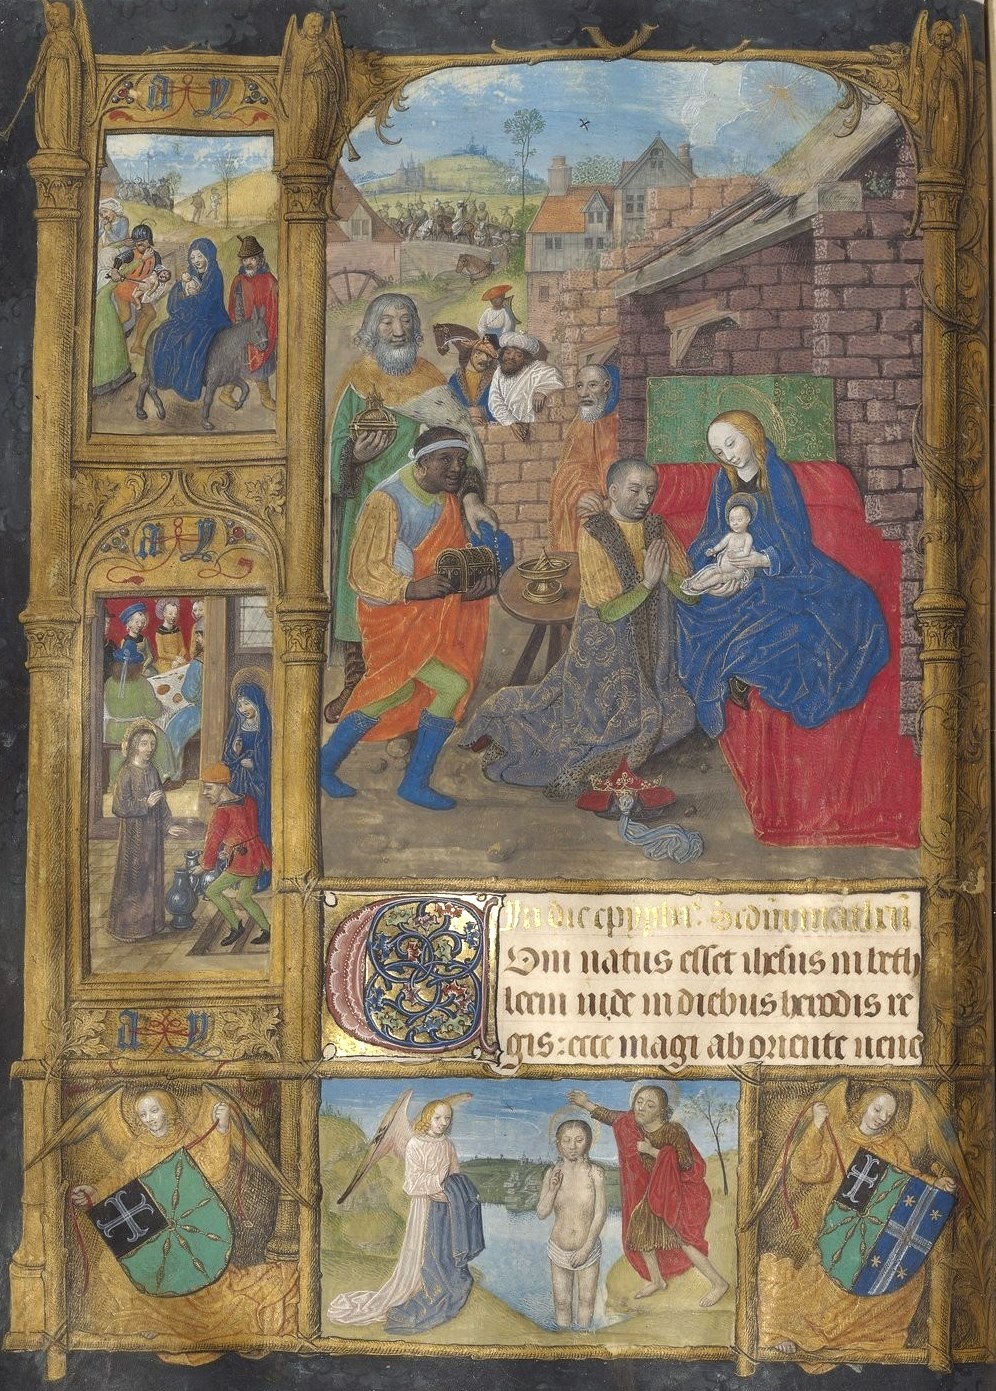 a y
a y
a y
In die
CUm natus esset ihesus in beth
leem iude in diebus herodis re
gis: ecce magi ab oriente uene